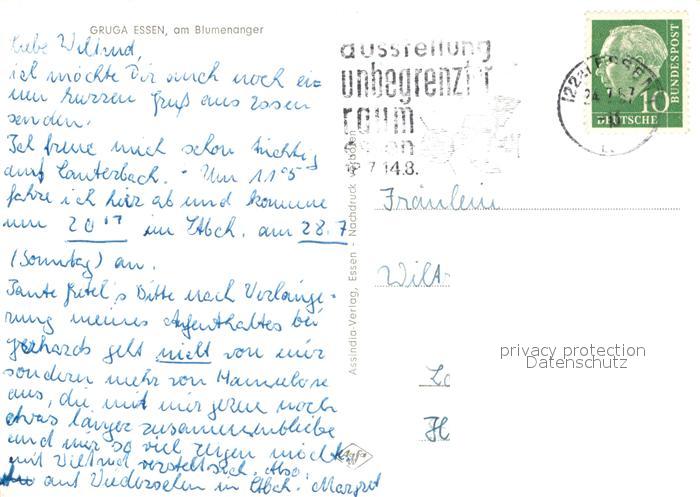 GRUGA ESSEN, am Blumenanger
Liebe Wiltrud,
ich möchte Dir auch noch ei-
nen kurzen Gruß aus Essen
senden.
Ich freue mich schon tüchtig
auf Lauterbach. Um 11⁰⁵
fahre ich hier ab und komme
um 20¹⁷ in Lbch. am 28.7
(Sonntag) an.
Tante Gretel's Bitte nach Verlänge-
rung meines Aufenthaltes bei
Gerhards geht nicht von mir
sondern mehr von Hannelore
aus, die mit mir gerne noch
etwas länger zusammenbliebe
und mir so viel zeigen möchte
mit Wiltrud versteht sich. Also
auf Wiedersehen in Lbch. Margret
Assindia-Verlag, Essen - Nachdruck verboten
ausstellung
unbegrenzter
raum
essen
7 14.8.
(22a) ESSEN
24.7.57
10
DEUTSCHE
BUNDESPOST
Fräulein
Wilt
privacy protection
Datenschutz